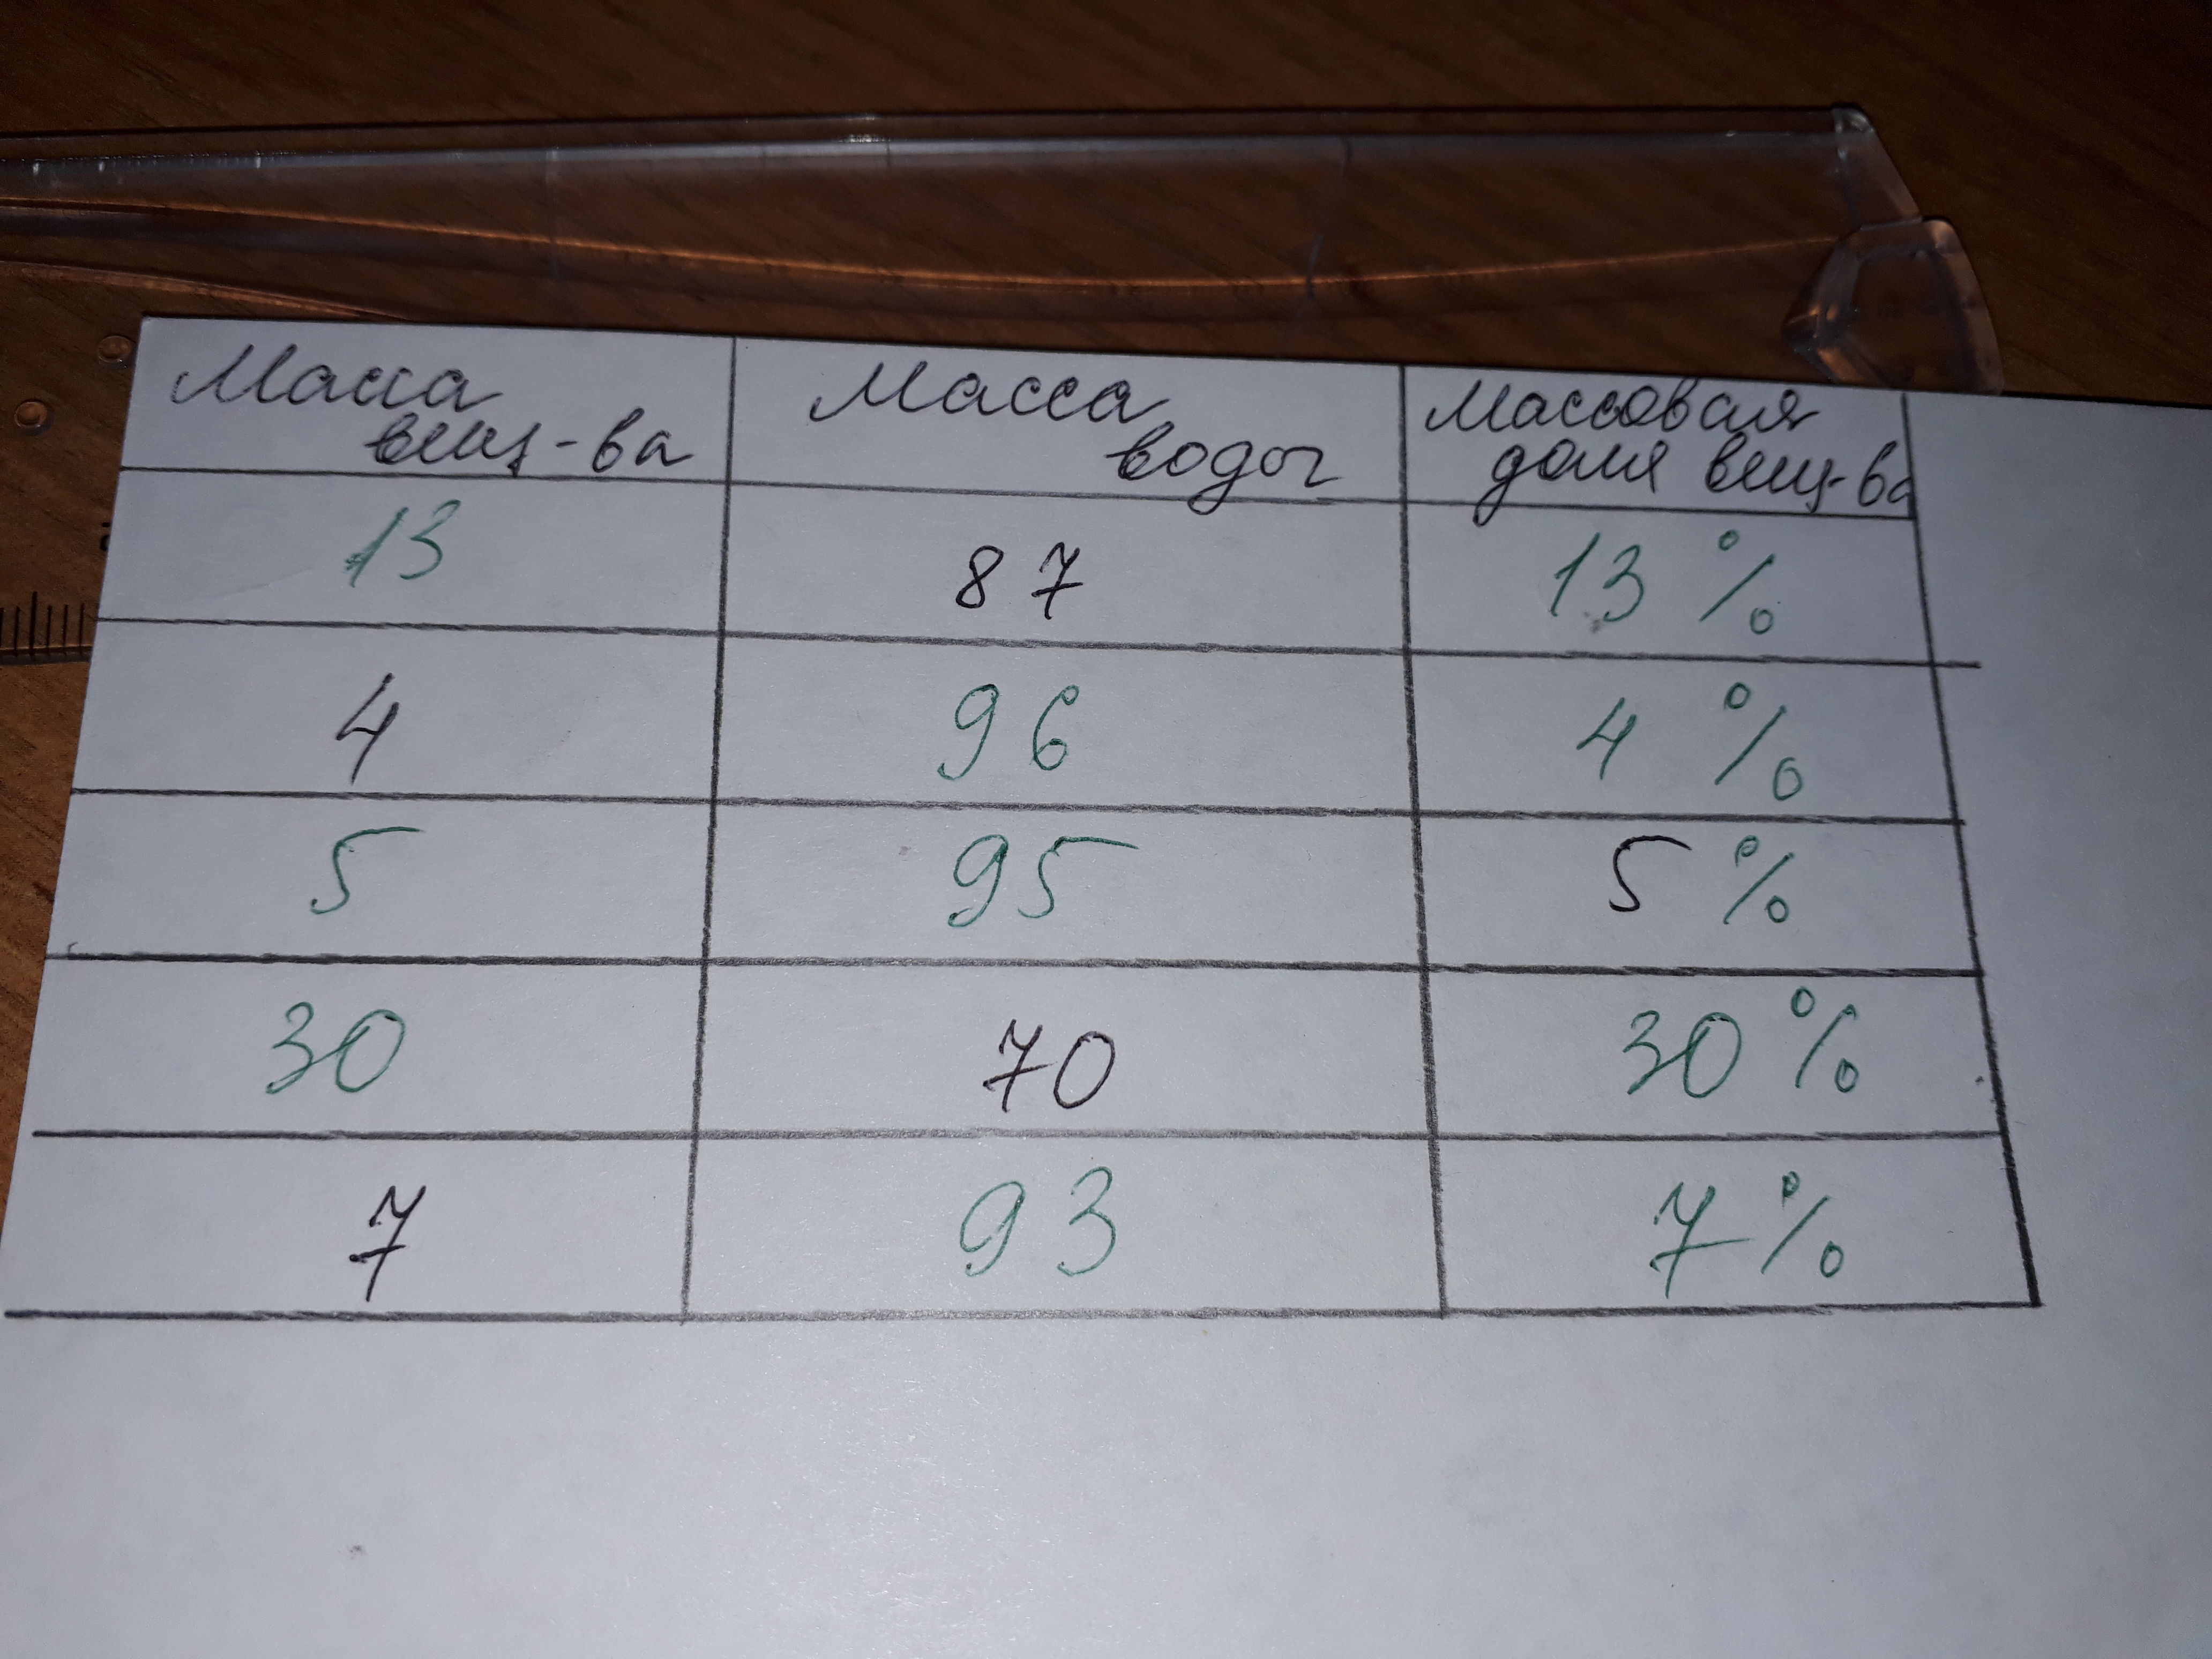 Масса Масса Массовая
вещ-ва воды доля вещ-ва
13 87 13 %
4 96 4 %
5 95 5 %
30 70 30 %
7 93 7 %